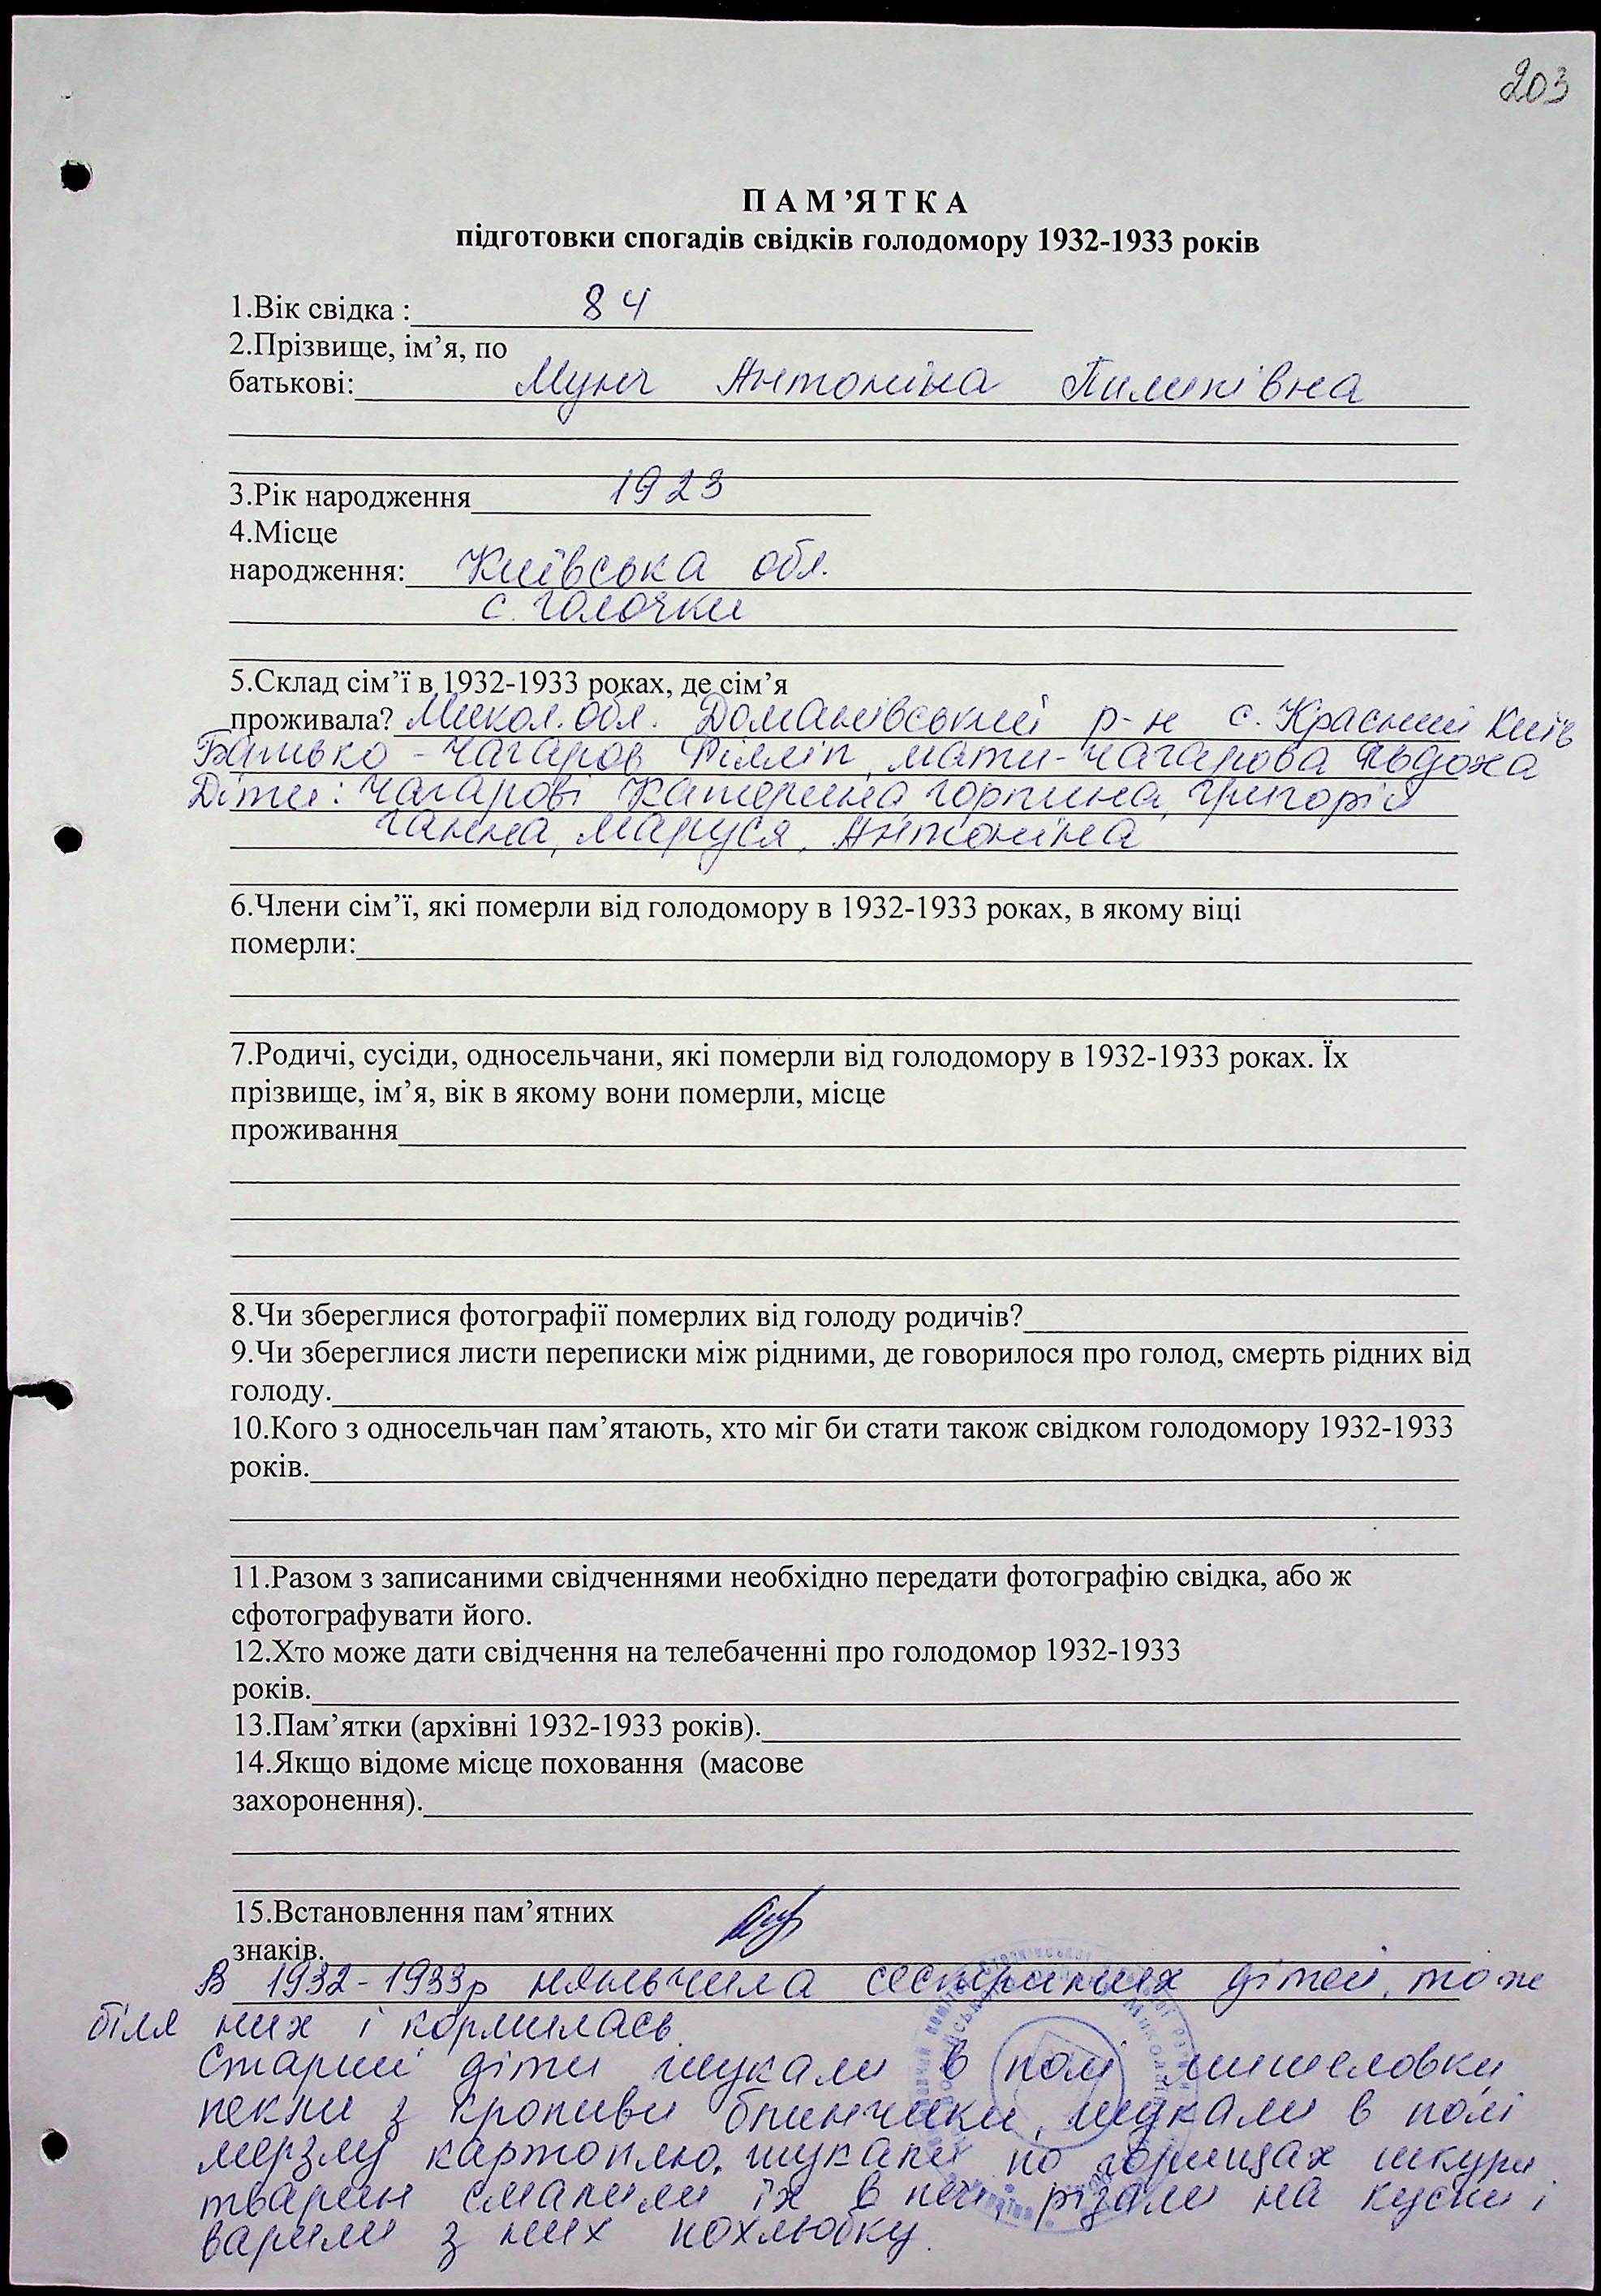 203
ПАМ’ЯТКА
підготовки спогадів свідків голодомору 1932-1933 років
1.Вік свідка : 84
2.Прізвище, ім’я, по
батькові: Мунг Антоніна Пилипівна
3.Рік народження 1923
4.Місце
народження: Київська обл.
с. Голочки
5.Склад сім’ї в 1932-1933 роках, де сім’я
проживала? Микол. обл. Доманівський р-н с. Красний Київ
Батько - Чагаров Філліп, мати - Чагарова Явдоха
Діти: Чагарові Катерина, Горпина, Григорій
Ганна, Маруся, Антоніна
6.Члени сім’ї, які померли від голодомору в 1932-1933 роках, в якому віці
померли:
7.Родичі, сусіди, односельчани, які померли від голодомору в 1932-1933 роках. Їх
прізвище, ім’я, вік в якому вони померли, місце
проживання
8.Чи збереглися фотографії померлих від голоду родичів?
9.Чи збереглися листи переписки між рідними, де говорилося про голод, смерть рідних від
голоду.
10.Кого з односельчан пам’ятають, хто міг би стати також свідком голодомору 1932-1933
років.
11.Разом з записаними свідченнями необхідно передати фотографію свідка, або ж
сфотографувати його.
12.Хто може дати свідчення на телебаченні про голодомор 1932-1933
років.
13.Пам’ятки (архівні 1932-1933 років).
14.Якщо відоме місце поховання (масове
захоронення).
15.Встановлення пам’ятних
знаків.
В 1932-1933р няньчила сестриних дітей, тож
біля них і кормилась.
Старші діти шукали в полі мишеловки,
пекли з кропиви блинчики, шукали в полі
мерзлу картоплю, шукали по горищах шкури
тварин смалили їх в печі, різали на куски і
варили з них похльобку.